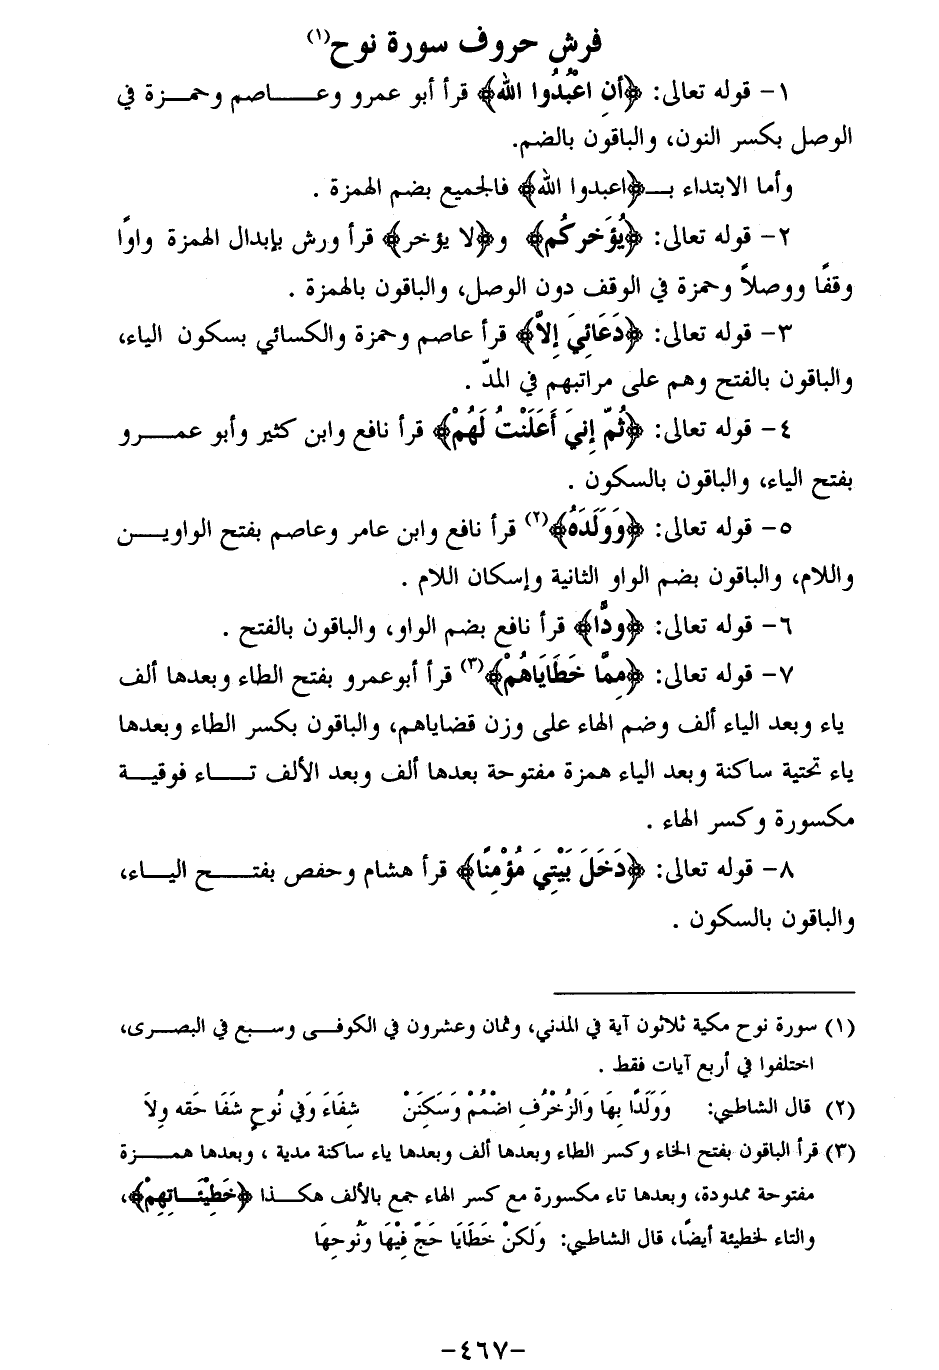 فرش حروف سورة نوح(١)
١- قوله تعالى: ﴿أَنِ اعْبُدُوا الله﴾ قرأ أبو عمرو وعـاصم وحمـزة في
الوصل بكسر النون، والباقون بالضم.
وأما الابتداء بـ﴿اعبدوا الله﴾ فالجميع بضم الهمزة .
٢- قوله تعالى: ﴿يُؤَخركُم﴾ و﴿لا يؤخر﴾ قرأ ورش بإبدال الهمزة واوًا
وقفًا ووصلاً وحمزة في الوقف دون الوصل، والباقون بالهمزة .
٣- قوله تعالى: ﴿دَعَائِيَ إِلاَّ﴾ قرأ عاصم وحمزة والكسائي بسكون الياء،
والباقون بالفتح وهم على مراتبهم في المدّ .
٤- قوله تعالى: ﴿ثُمّ إِنيَ أَعَلَنْتُ لَهُمْ﴾ قرأ نافع وابن كثير وأبو عمـرو
بفتح الياء، والباقون بالسكون .
٥- قوله تعالى: ﴿وَوَلَدَهُ﴾(٢) قرأ نافع وابن عامر وعاصم بفتح الواويـن
واللام، والباقون بضم الواو الثانية وإسكان اللام .
٦- قوله تعالى: ﴿ودًّا﴾ قرأ نافع بضم الواو، والباقون بالفتح .
٧- قوله تعالى: ﴿مِمَّا خَطَايَاهُمْ﴾(٣) قرأ أبوعمرو بفتح الطاء وبعدها ألف
ياء وبعد الياء ألف وضم الهاء على وزن قضاياهم، والباقون بكسر الطاء وبعدها
ياء تحتية ساكنة وبعد الياء همزة مفتوحة بعدها ألف وبعد الألف تـاء فوقيـة
مكسورة وكسر الهاء .
٨- قوله تعالى: ﴿دَخَلَ بَيْتِيَ مُؤْمِنًا﴾ قرأ هشام وحفص بفتـح اليـاء،
والباقون بالسكون .
(١) سورة نوح مكية ثلاثون آية في المدني، وثمان وعشرون في الكوفـى وسـبع في البصـرى،
اختلفوا في أربع آيات فقط .
(٢) قال الشاطبي: وَوَلَدًا بِهَا وَالزُخْرُفِ اضْمُمْ وَسَكِنَنْ شِفَاءً وَفي نُوحٍ شَفَا حَقه وِلاَ
(٣) قرأ الباقون بفتح الخاء وكسر الطاء وبعدها ألف وبعدها ياء ساكنة مدية ، وبعدها همـزة
مفتوحة ممدودة، وبعدها تاء مكسورة مع كسر الهاء جمع بالألف هكـذا ﴿خَطِيْئَـاتِهِمْ﴾،
والتاء لخطيئة أيضًا، قال الشاطبي: وَلَكنْ خَطَايَا حَجّ فِيْهَا وَنُوحِهَا
-٤٦٧-